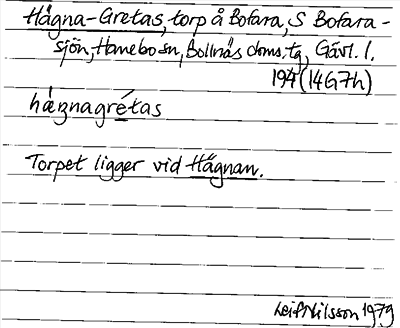 Hägna-Gretas, torp å Bofara, S Bofara-
sjön, Hanebo sn, Bollnäs doms.tg, Gävl. l.
194 (14G7h)
hägnagrétas
Torpet ligger vid Hägnan.
Leif Nilsson 1979